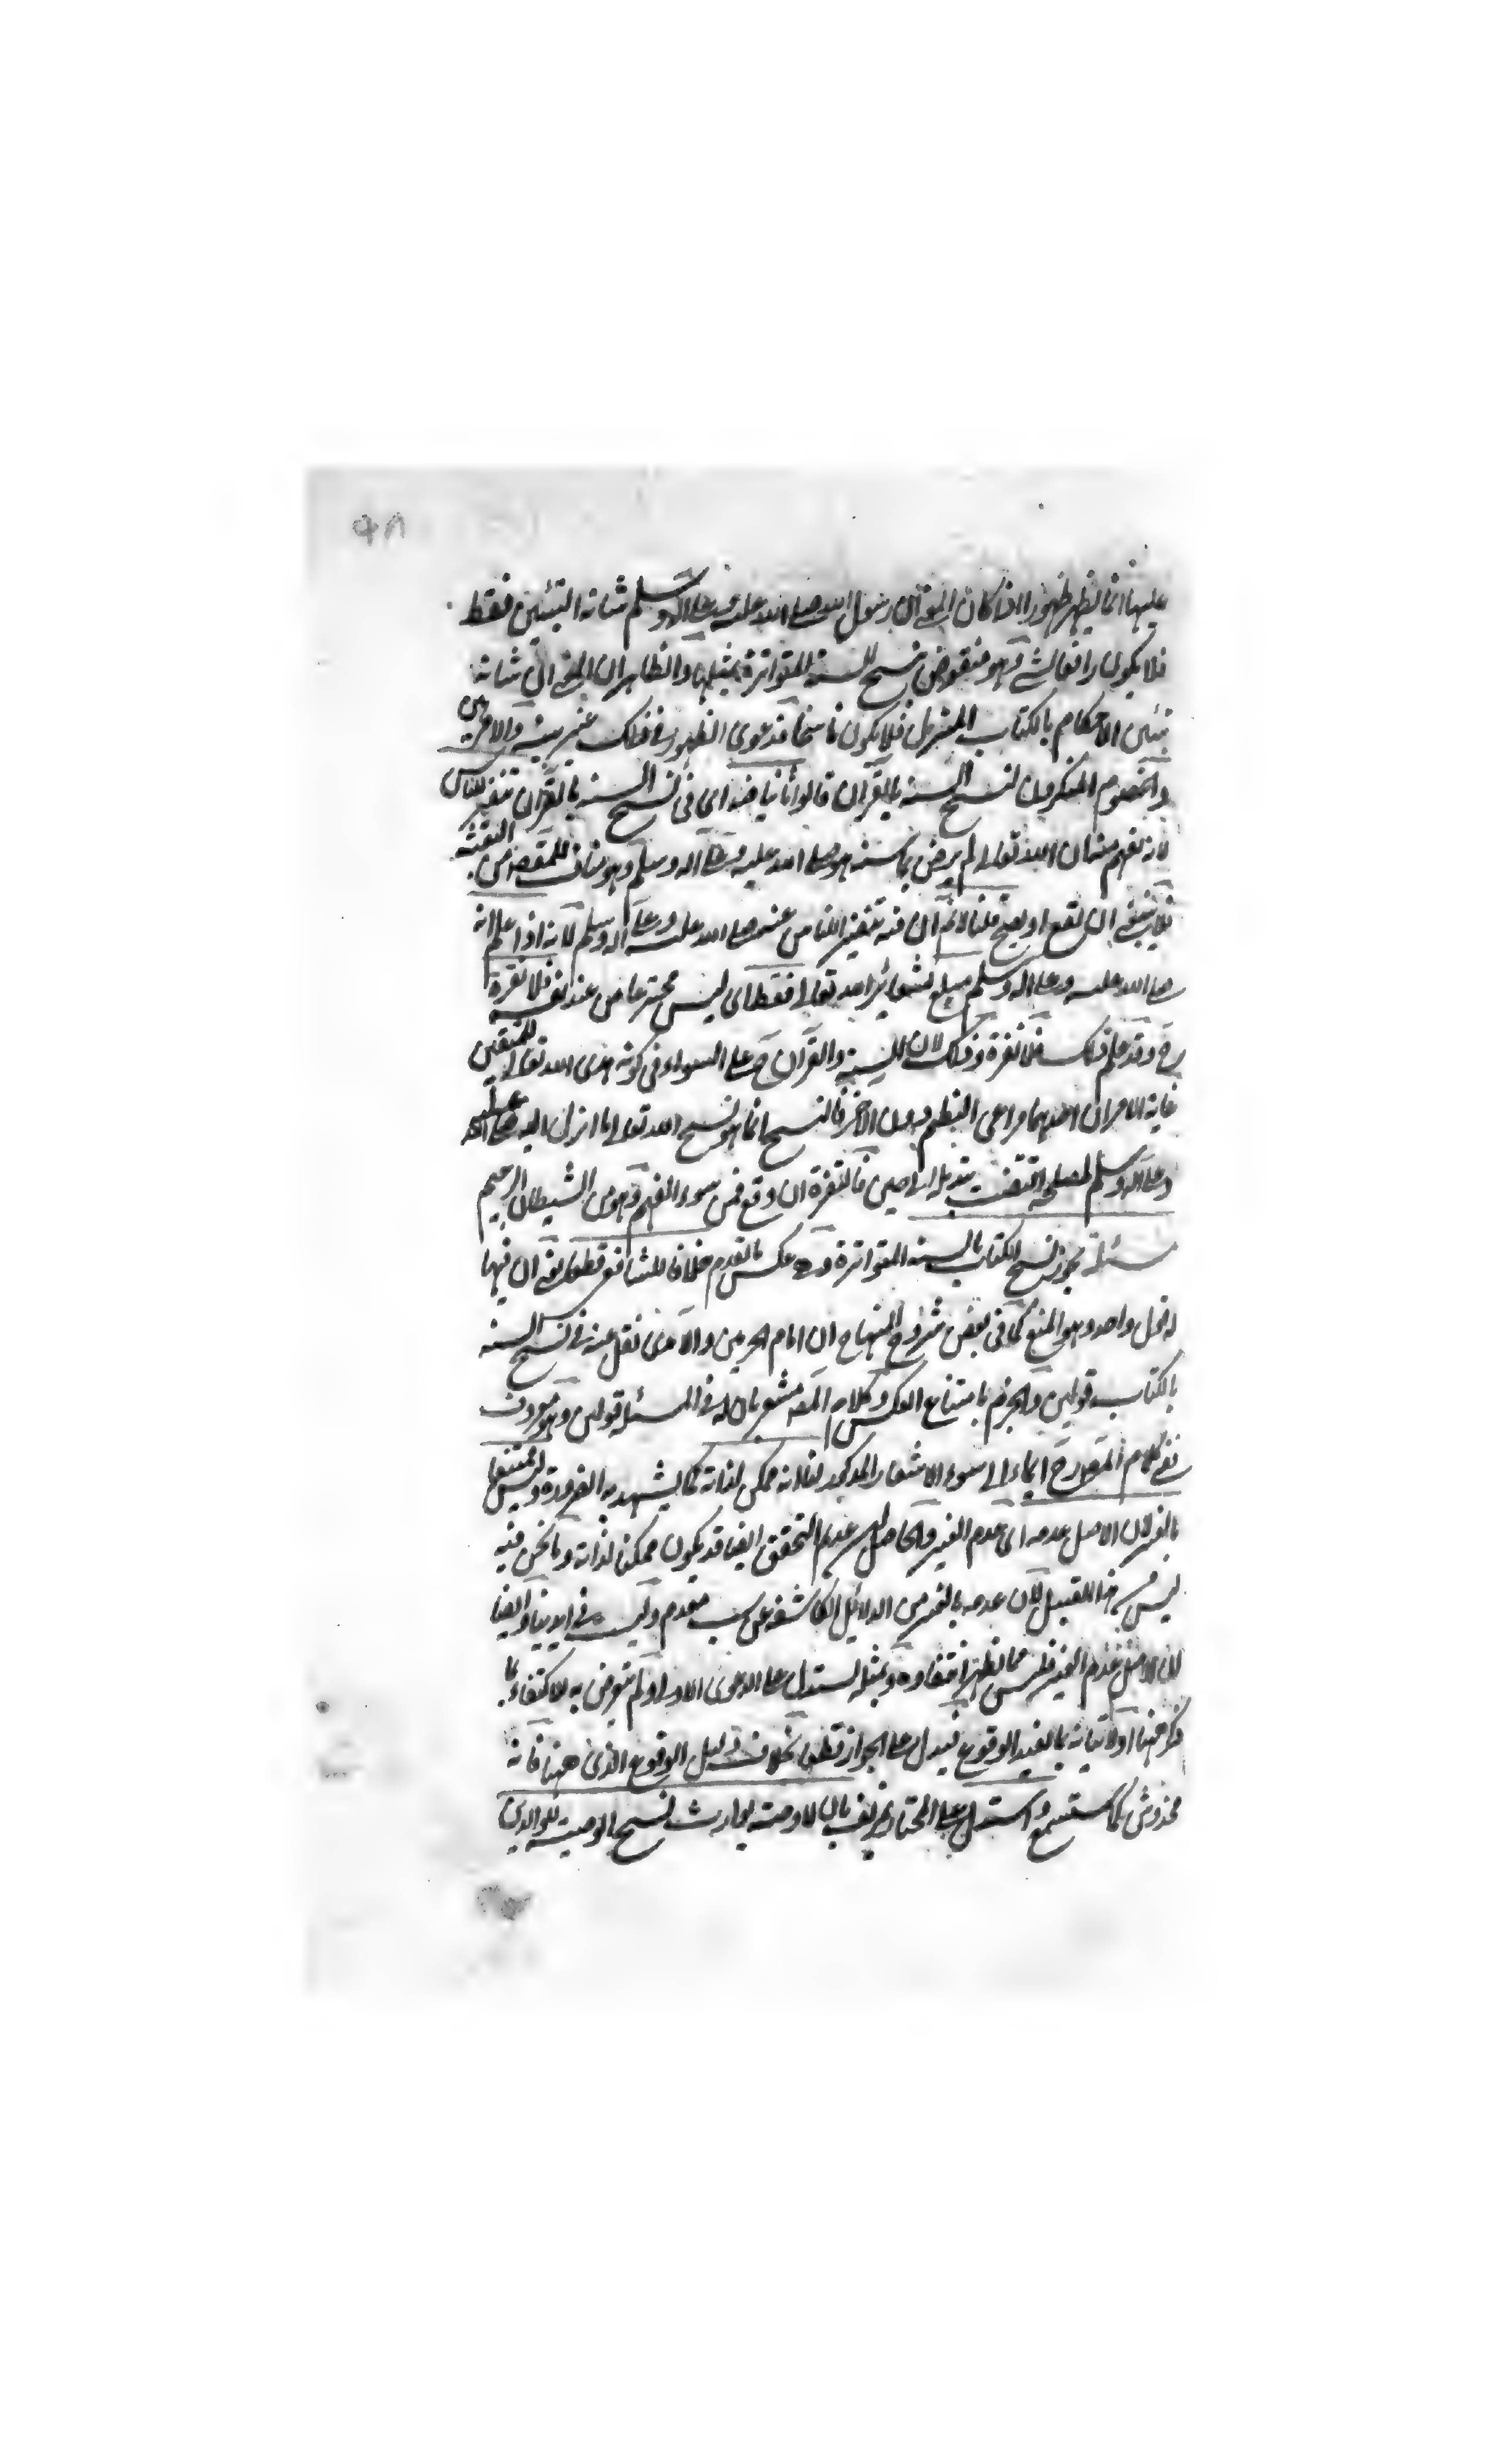 ٩٨
عليها انما يظهر ظهورا اذا كان المعنى ان رسول الله صلى الله عليه وعلى آله وسلم شانه التبيين فقط
فلا يكون رافعا لشيء وهو منقوض بنسخ السنة المتواترة بمثلها والظاهر ان المعنى ان شانه
تبيين الاحكام بالكتاب المنزل فلا يكون ناسخا فدعوى الظهور في ذلك غير بينة والامر بين
والخصوم المنكرون لنسخ السنة بالقران قالوا ثانيا فيه اى فى نسخ السنة بالقران تنفير للناس
لانه يفهم منه ان الله تعالى لم يرض بما سنه هو صلى الله عليه وعلى آله وسلم وهو مناف للمقصود من البعثة
فلا ينبغي ان يقع او يصح قلنا لانم ان فيه تنفير الناس عنه صلى الله عليه وعلى آله وسلم لانه اذا علم انه
صلى الله عليه وعلى اله وسلم مبلغ لشعائر الله تعالى فقط اى ليس مخترعا من عند نفسه فلا نفرة
ح وقد علم ذلك فلا نفرة وذلك لان السنة والقرآن ح على السواء فى كونه هدى الله تعالى للمتقين
غاية الامر ان احدهما مراعى النظم دون الاخر فالنسخ انما هو نسخ الله تعالى ما انزل اليه صلى الله عليه
وعلى اله وسلم لمصلحة اقتضت تبديله الى حين فالنفرة ان وقع فمن سوء الفهم وهو من الشيطان الرجيم
مسئلة يجوز نسخ الكتاب بالسنة المتواترة وهو عكس ما تقدم خلافا للشافعى قطعا يعنى ان فيها
له قول واحد وهو المنع كما فى بعض شروح المنهاج ان امام الحرمين والآمدى نقل عنه في نسخ السنة
بالكتاب قولين والجزم بامتناع العكس وكلام المص مشعر بان له فى المسئلة قولين وهو معروف
ففي كلام المص رح ايماء الى سوء الاشعار المذكور لنا انه ممكن لذاته كما يشهد به الضرورة وليس ممتنعا
بالغير لان الاصل عدمه اى عدم الغير والحاصل عدم التحقق ايضا قد يكون ممكنا لذاته وما نحن فيه
ليس من هذا القبيل لان عدمه بالغير من الدلائل الكاشفة عن سبب متقدم وليست فى ايدينا وايضا
لان الاصل عدم الغير فليس مما يظهر انتفاؤه وبمثله يستدل على الدعوى الاولى ولم يتعرض به للاكتفاء بما
ذكر ههنا اولا بيانه بما يفيد الوقوع فيدل على الجواز قطعا بخلاف دليل الوقوع الذى ههنا فانه
مخدوش كما ستسمع واستدل على المختار بان لا وصية لوارث نسخ الوصية للوالدين